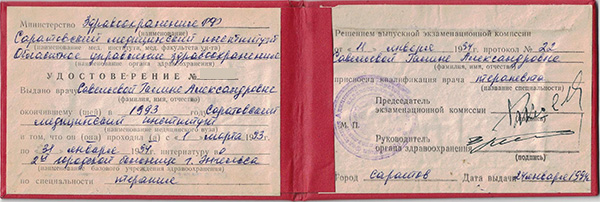 Министерство Здравоохранения РФ
(наименование)
Саратовский медицинский институт
(наименование мед. института, мед. факультета ун-та)
Областное управление здравоохранения
(наименование органа здравоохранения)
УДОСТОВЕРЕНИЕ №
Выдано врачу Савельевой Галине Александровне
(фамилия, имя, отчество)
окончившему (шей) в 1993 году Саратовский
медицинский институт
(наименование медицинского вуза)
в том, что он (она) проходил (а) с „1" марта 1993 г.
по 31 января 1994 г. интернатуру в
2ой городской больнице г. Энгельса
(наименование базового учреждения здравоохранения)
по специальности терапия
Решением выпускной экзаменационной комиссии
от „11" января 1994 г. протокол № 22
Савельевой Галине Александровне
(фамилия, имя, отчество)
присвоена квалификация врача терапевта
(название специальности)
Председатель
экзаменационной комиссии
М. П.
Руководитель
органа здравоохранения
(подпись)
Город Саратов Дата выдачи января 1994